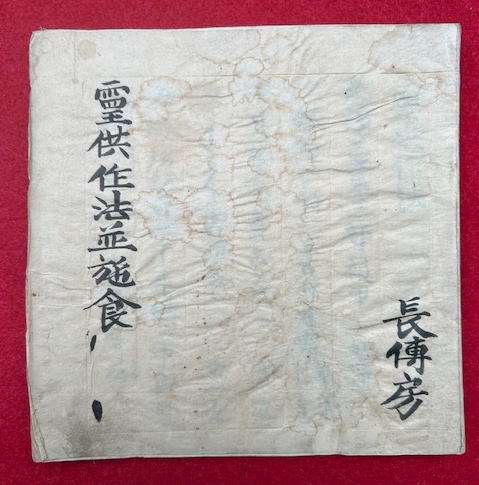 長傳房
靈供作法並施食